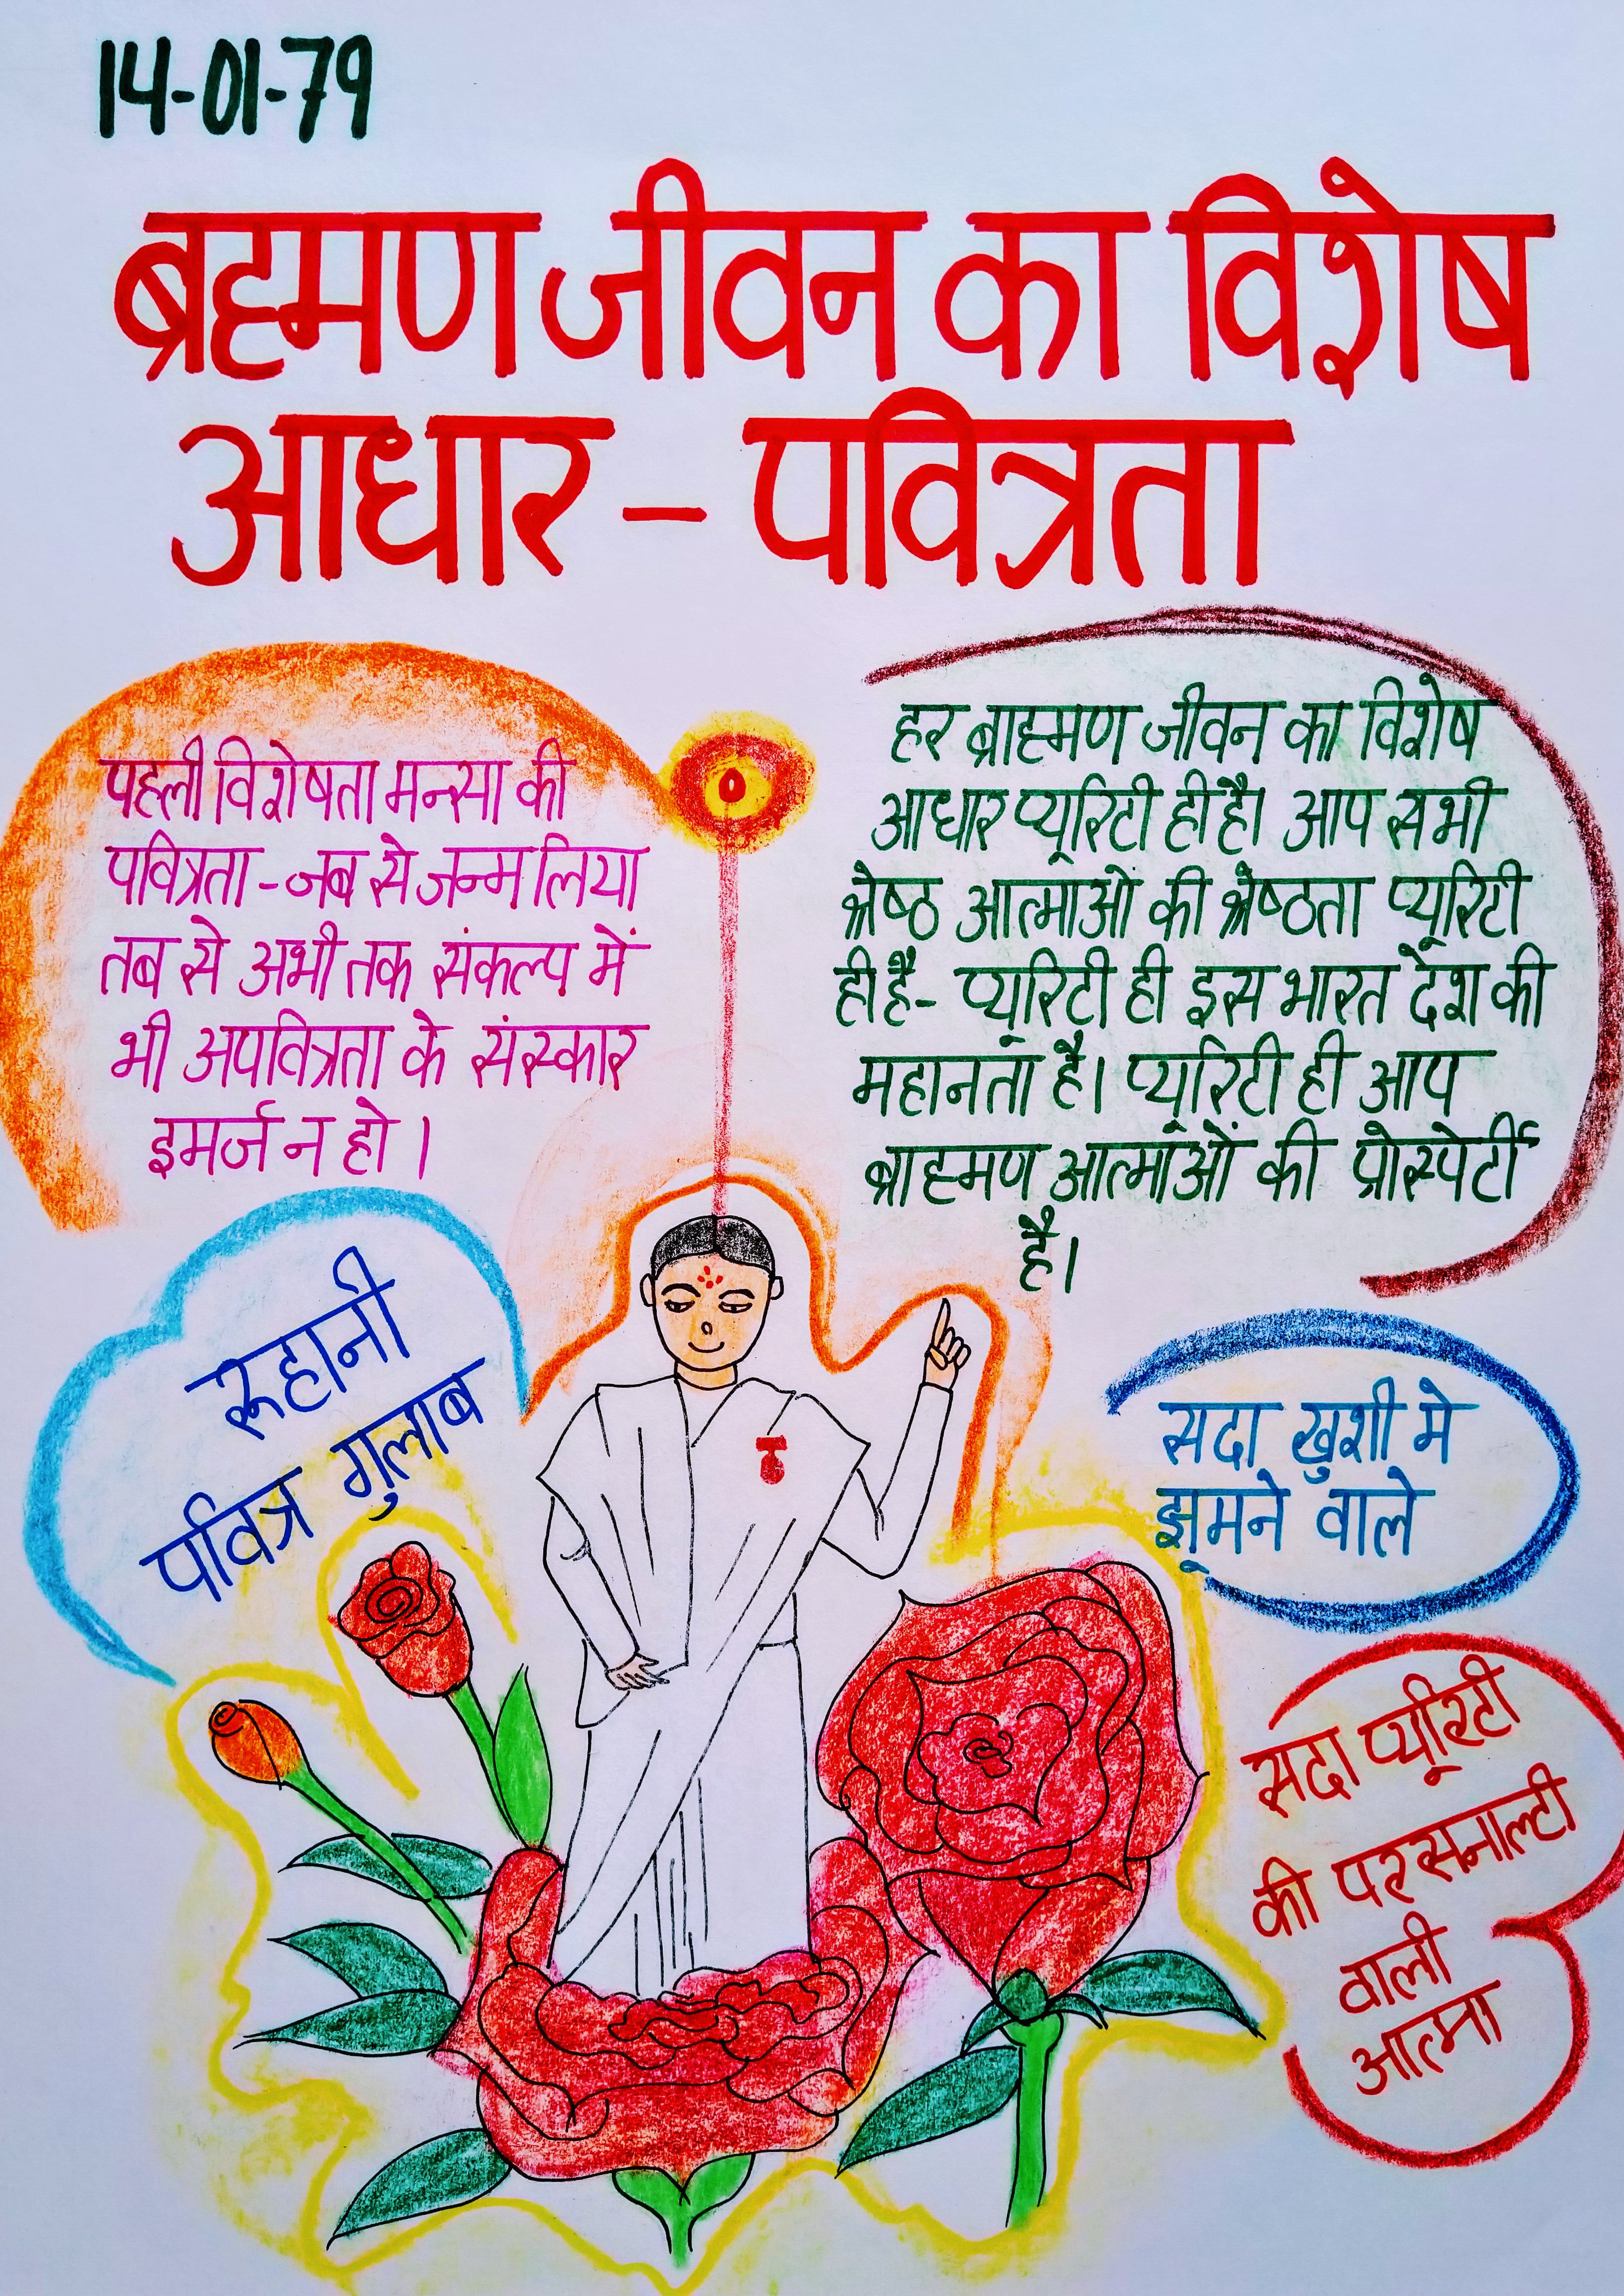 14-01-79
ब्रह्मण जीवन का विशेष
आधार - पवित्रता
पहली विशेषता मन्सा की
पवित्रता - जब से जन्म लिया
तब से अभी तक संकल्प में
भी अपवित्रता के संस्कार
इमर्ज न हो ।
हर ब्राह्मण जीवन का विशेष
आधार प्यूरिटी ही है। आप सभी
श्रेष्ठ आत्माओं की श्रेष्ठता प्यूरिटी
ही है- प्यूरिटी ही इस भारत देश की
महानता है। प्यूरिटी ही आप
ब्राह्मण आत्माओं की प्रोस्पेर्टी
है।
रूहानी
पवित्र गुलाब
सदा खुशी मे
झूमने वाले
सदा प्यूरिटी
की परसनाल्टी
वाली
आत्मा